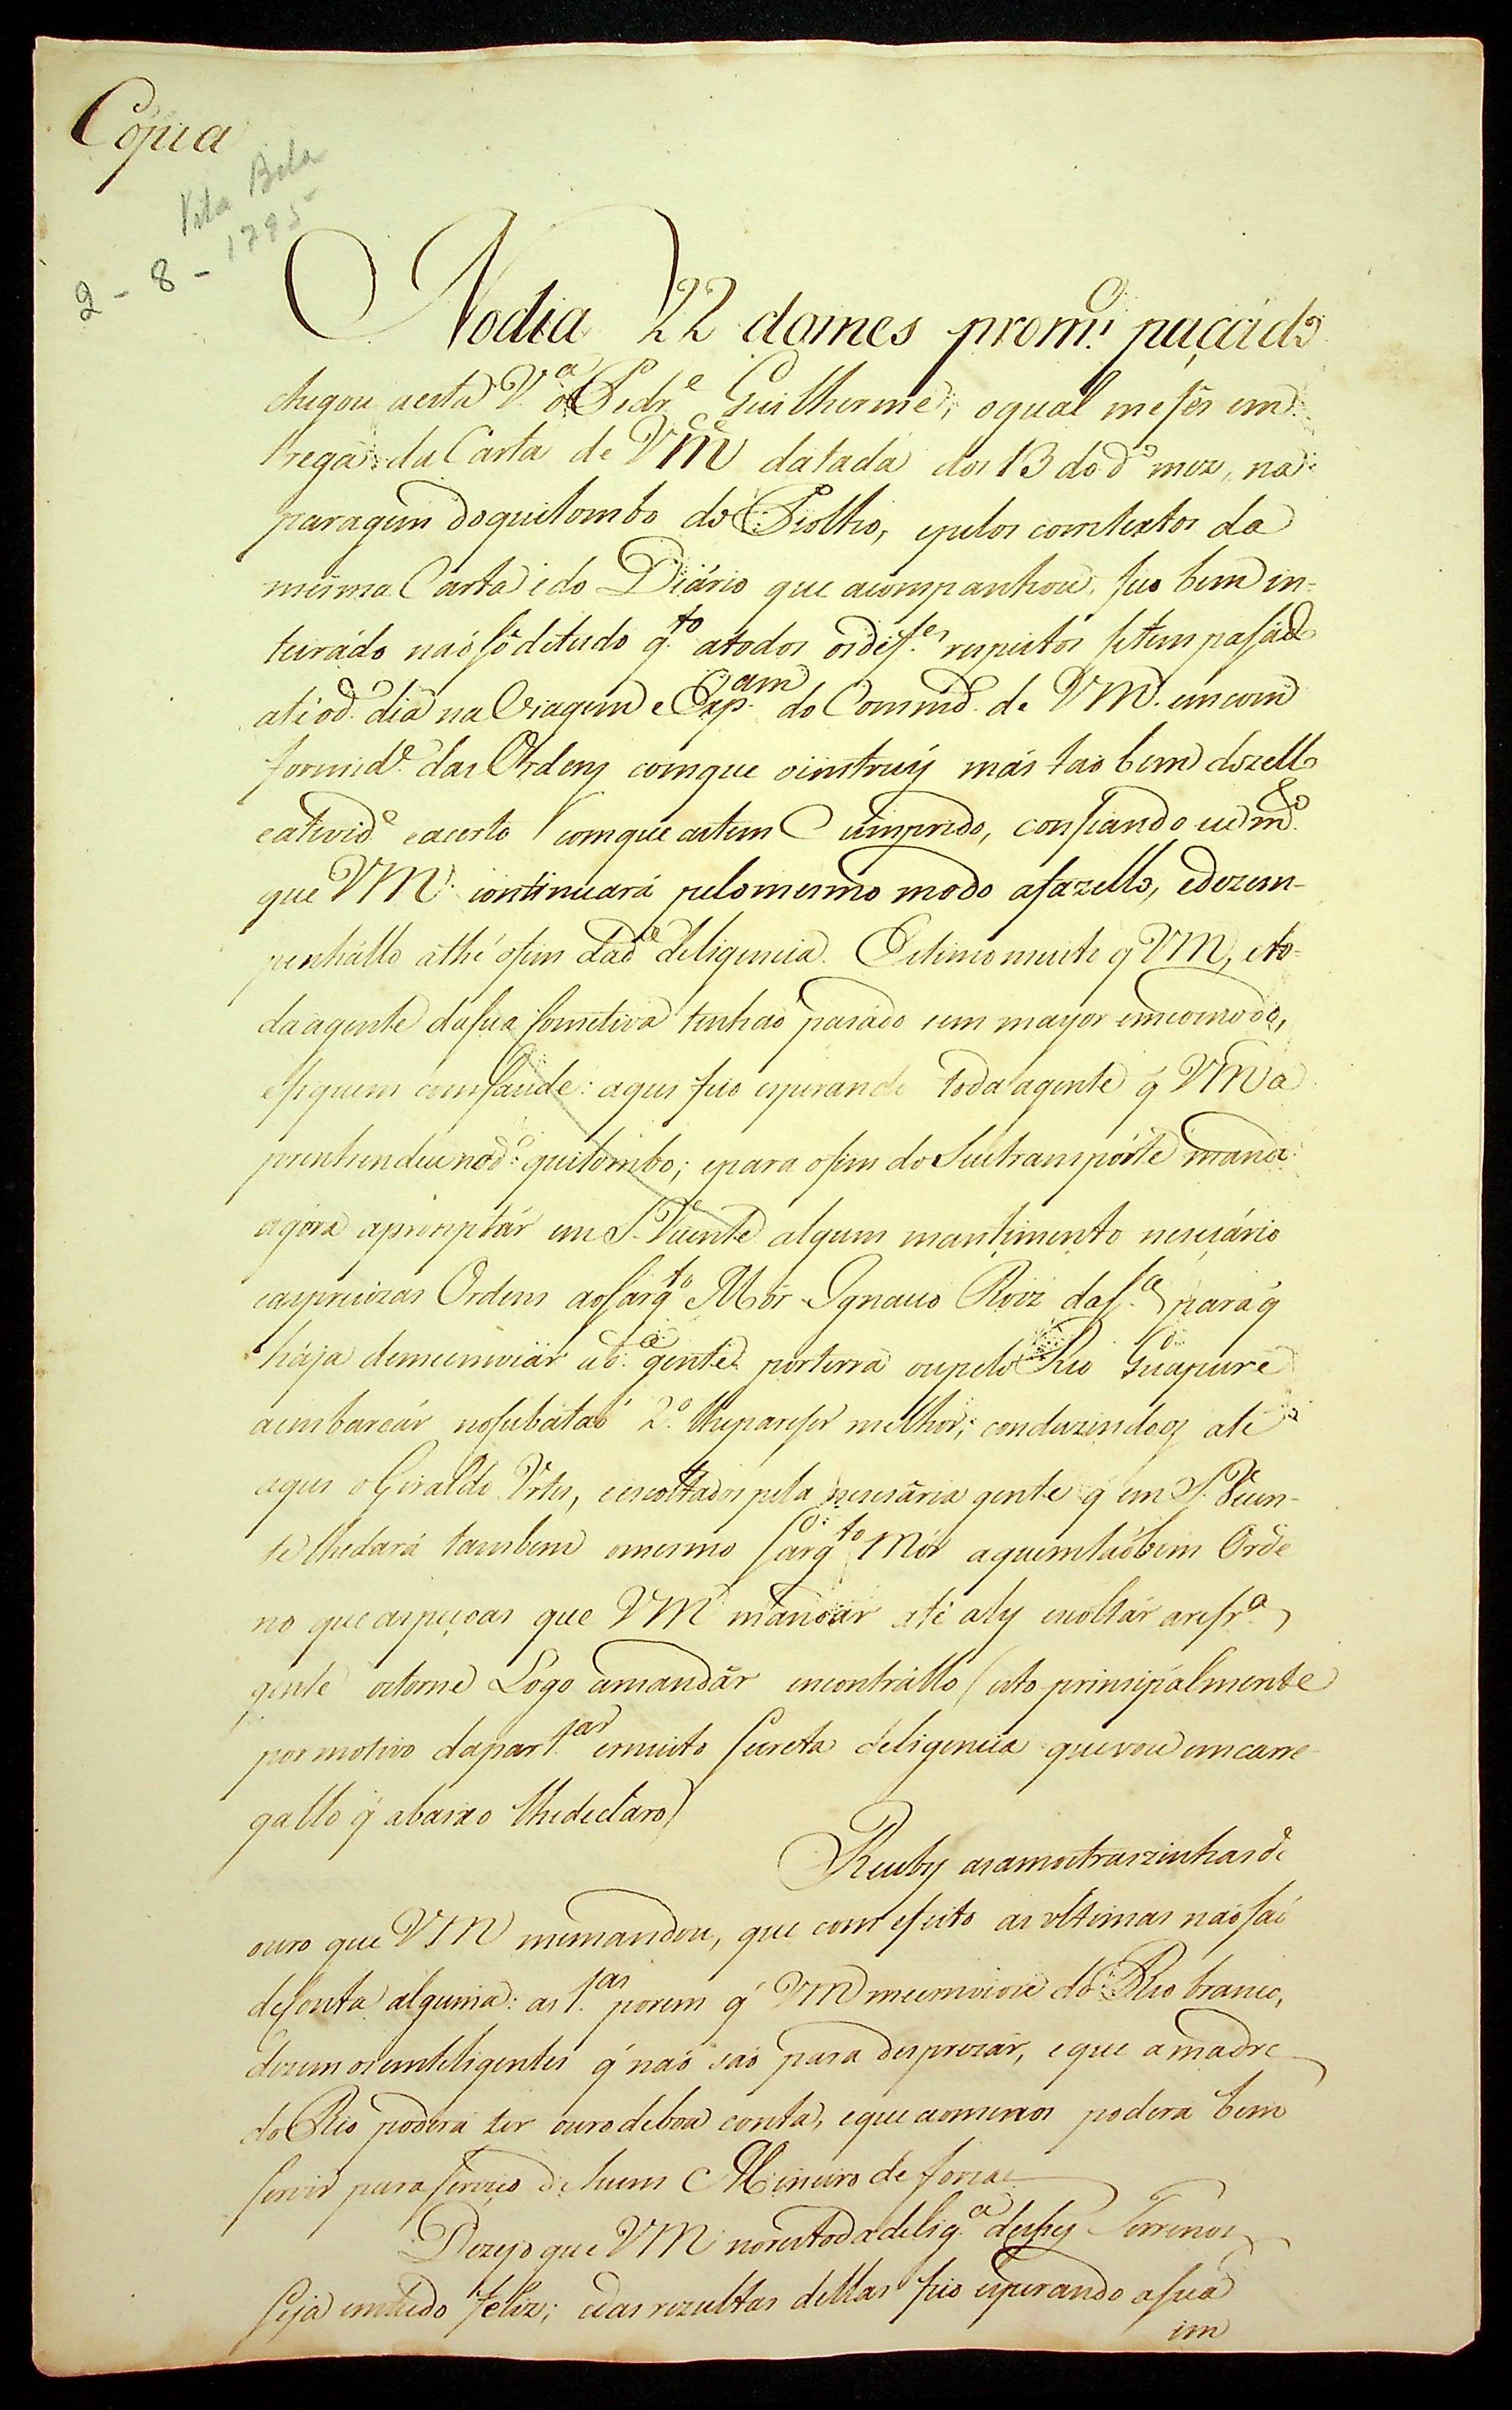 Cópia
Vila Bela
2 - 8 - 1795
No dia 22 do mes prom.º paçado
chegou a esta V.ª o Pedr.e Guilherme, o qual me fes em
trega da Carta de VM.ce datada dos 13 do d.º mez, na
paragem do quilombo do Piolho, e pelos comtextos da
mesma Carta e do Diário que acompanhou, fico bem in-
teirádo naó só de tudo q.to a todos os dif.es respeitos se tem pasádo
até o d.º dia na Viagem e Exp.am do Commd. de VM. em com
formid.e das Ordens com que o instruý más tao bem do zello
e ativid.e e acerto com que as tem Cumprido, confiando eu m.to
que VM. continuará pelo mesmo modo a fazello, e dezem-
penhállo athé o fim da d.a deligencia. Estimo muito q VM, e to-
da a gente da sua Comitiva tenhaó pasado sem mayor emcomodo,
e fiquem com saude: aqui fico esperando toda a gente q VM a
prenhendeu no d.º quilombo; e para o fim do Seu transpórte mando
agóra apromptár em S. Vicente algum mantimento nesesário
e as precizas Ordens ao Sarg.to Mór Ignacio Roiz da S.ª para q
hája de me enviár a d.ª gente por terra ou pelo Rio Guaporé
a embarcár no Cubátaó 2.º lhe pareser melhor; conduzindo os até
aqui o Giraldo Urtes, e escoltados pela nesesária gente q em S. Vicen-
te lhe dará tambem o mesmo Sarg.to Mór a quem taóbem Orde
no que as peçoas que VM mandár até aly escoltár a refr.ª
gente os torne Lógo a mandár encontrállo (isto principalmente
por motivo da part.ar e muito secreta deligencia que vou emcarre-
gallo q abaixo lhe declaro)
Receby as amostraszinhas de
ouro que VM me mandou, que com efeito as ultimas naó saó
de conta alguma: as 1.as porem q VM me emviou do Rio branco,
dizem os emteligentes q naó saó para desprezár, e que a madre
do Rio poderá ter ouro de boa conta, e que ao menos poderá bem
servir para serviço de hum Mineiro de força.
Dezejo que VM no resto da delig.ª desses Terrenos
seja em tudo feliz; e das rezultas dellas fico esperando a sua
im